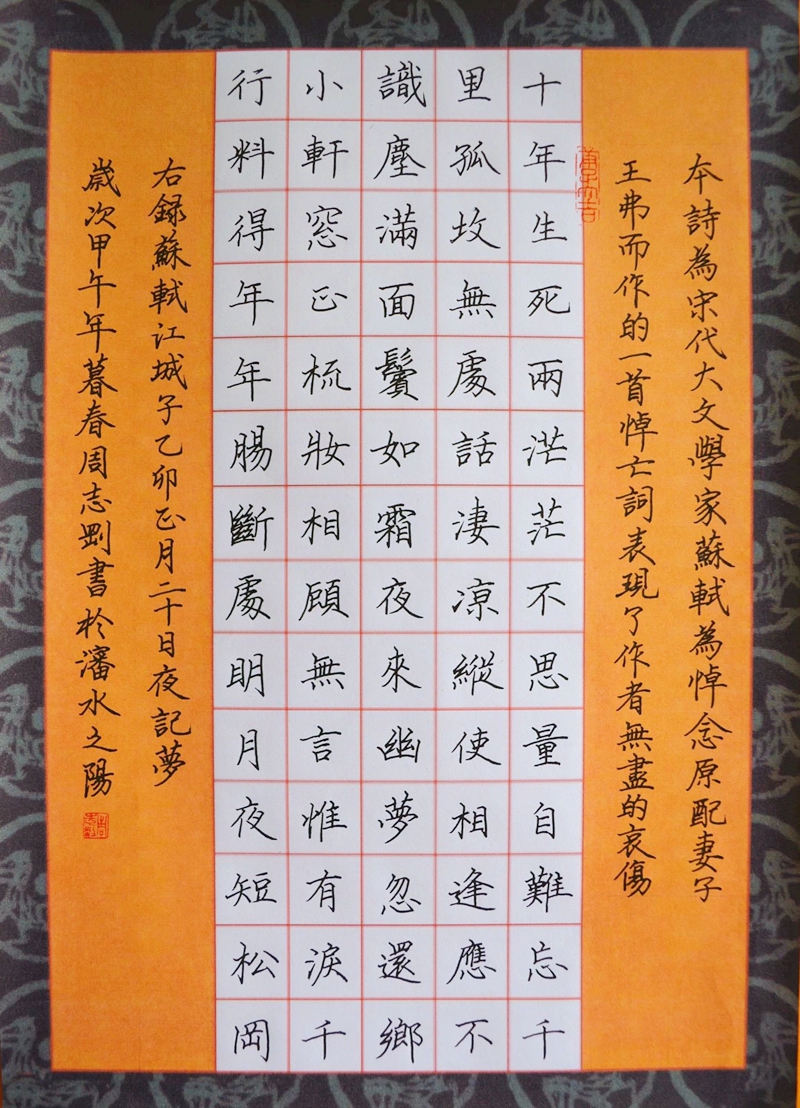 本詩為宋代大文學家蘇軾為悼念原配妻子
王弗而作的一首悼亡詞表現了作者無盡的哀傷
十年生死兩茫茫不思量自難忘千
里孤坟無處話淒凉縱使相逢應不
識塵滿面鬢如霜夜來幽夢忽還鄉
小軒窓正梳妝相顧無言惟有淚千
行料得年年腸斷處明月夜短松岡
右録蘇軾江城子乙卯正月二十日夜記夢
歲次甲午年暮春周志剛書於瀋水之陽